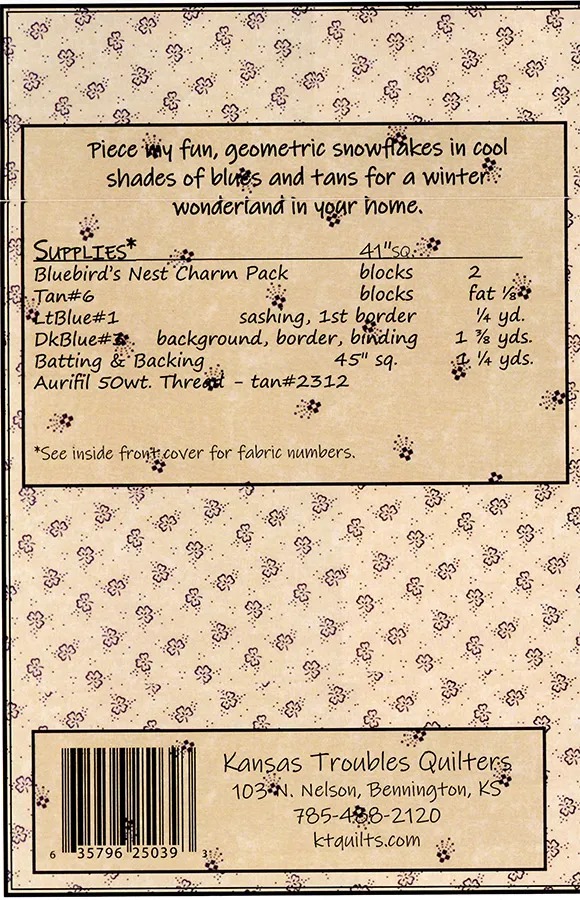 Piece my fun, geometric snowflakes in cool
shades of blues and tans for a winter
wonderland in your home.
SUPPLIES* 41"SQ.
Bluebird's Nest Charm Pack blocks 2
Tan#6 blocks fat ⅛
LtBlue#1 sashing, 1st border ¼ yd.
background, border, binding 1 ⅜ yds.
Batting & Backing 45" sq. 1 ¼ yds.
Aurifil 50wt. Thread - tan#2312
*See inside front cover for fabric numbers.
Kansas Troubles Quilters
103 N. Nelson, Bennington, KS
ktquilts.com
6 35796 25039 3